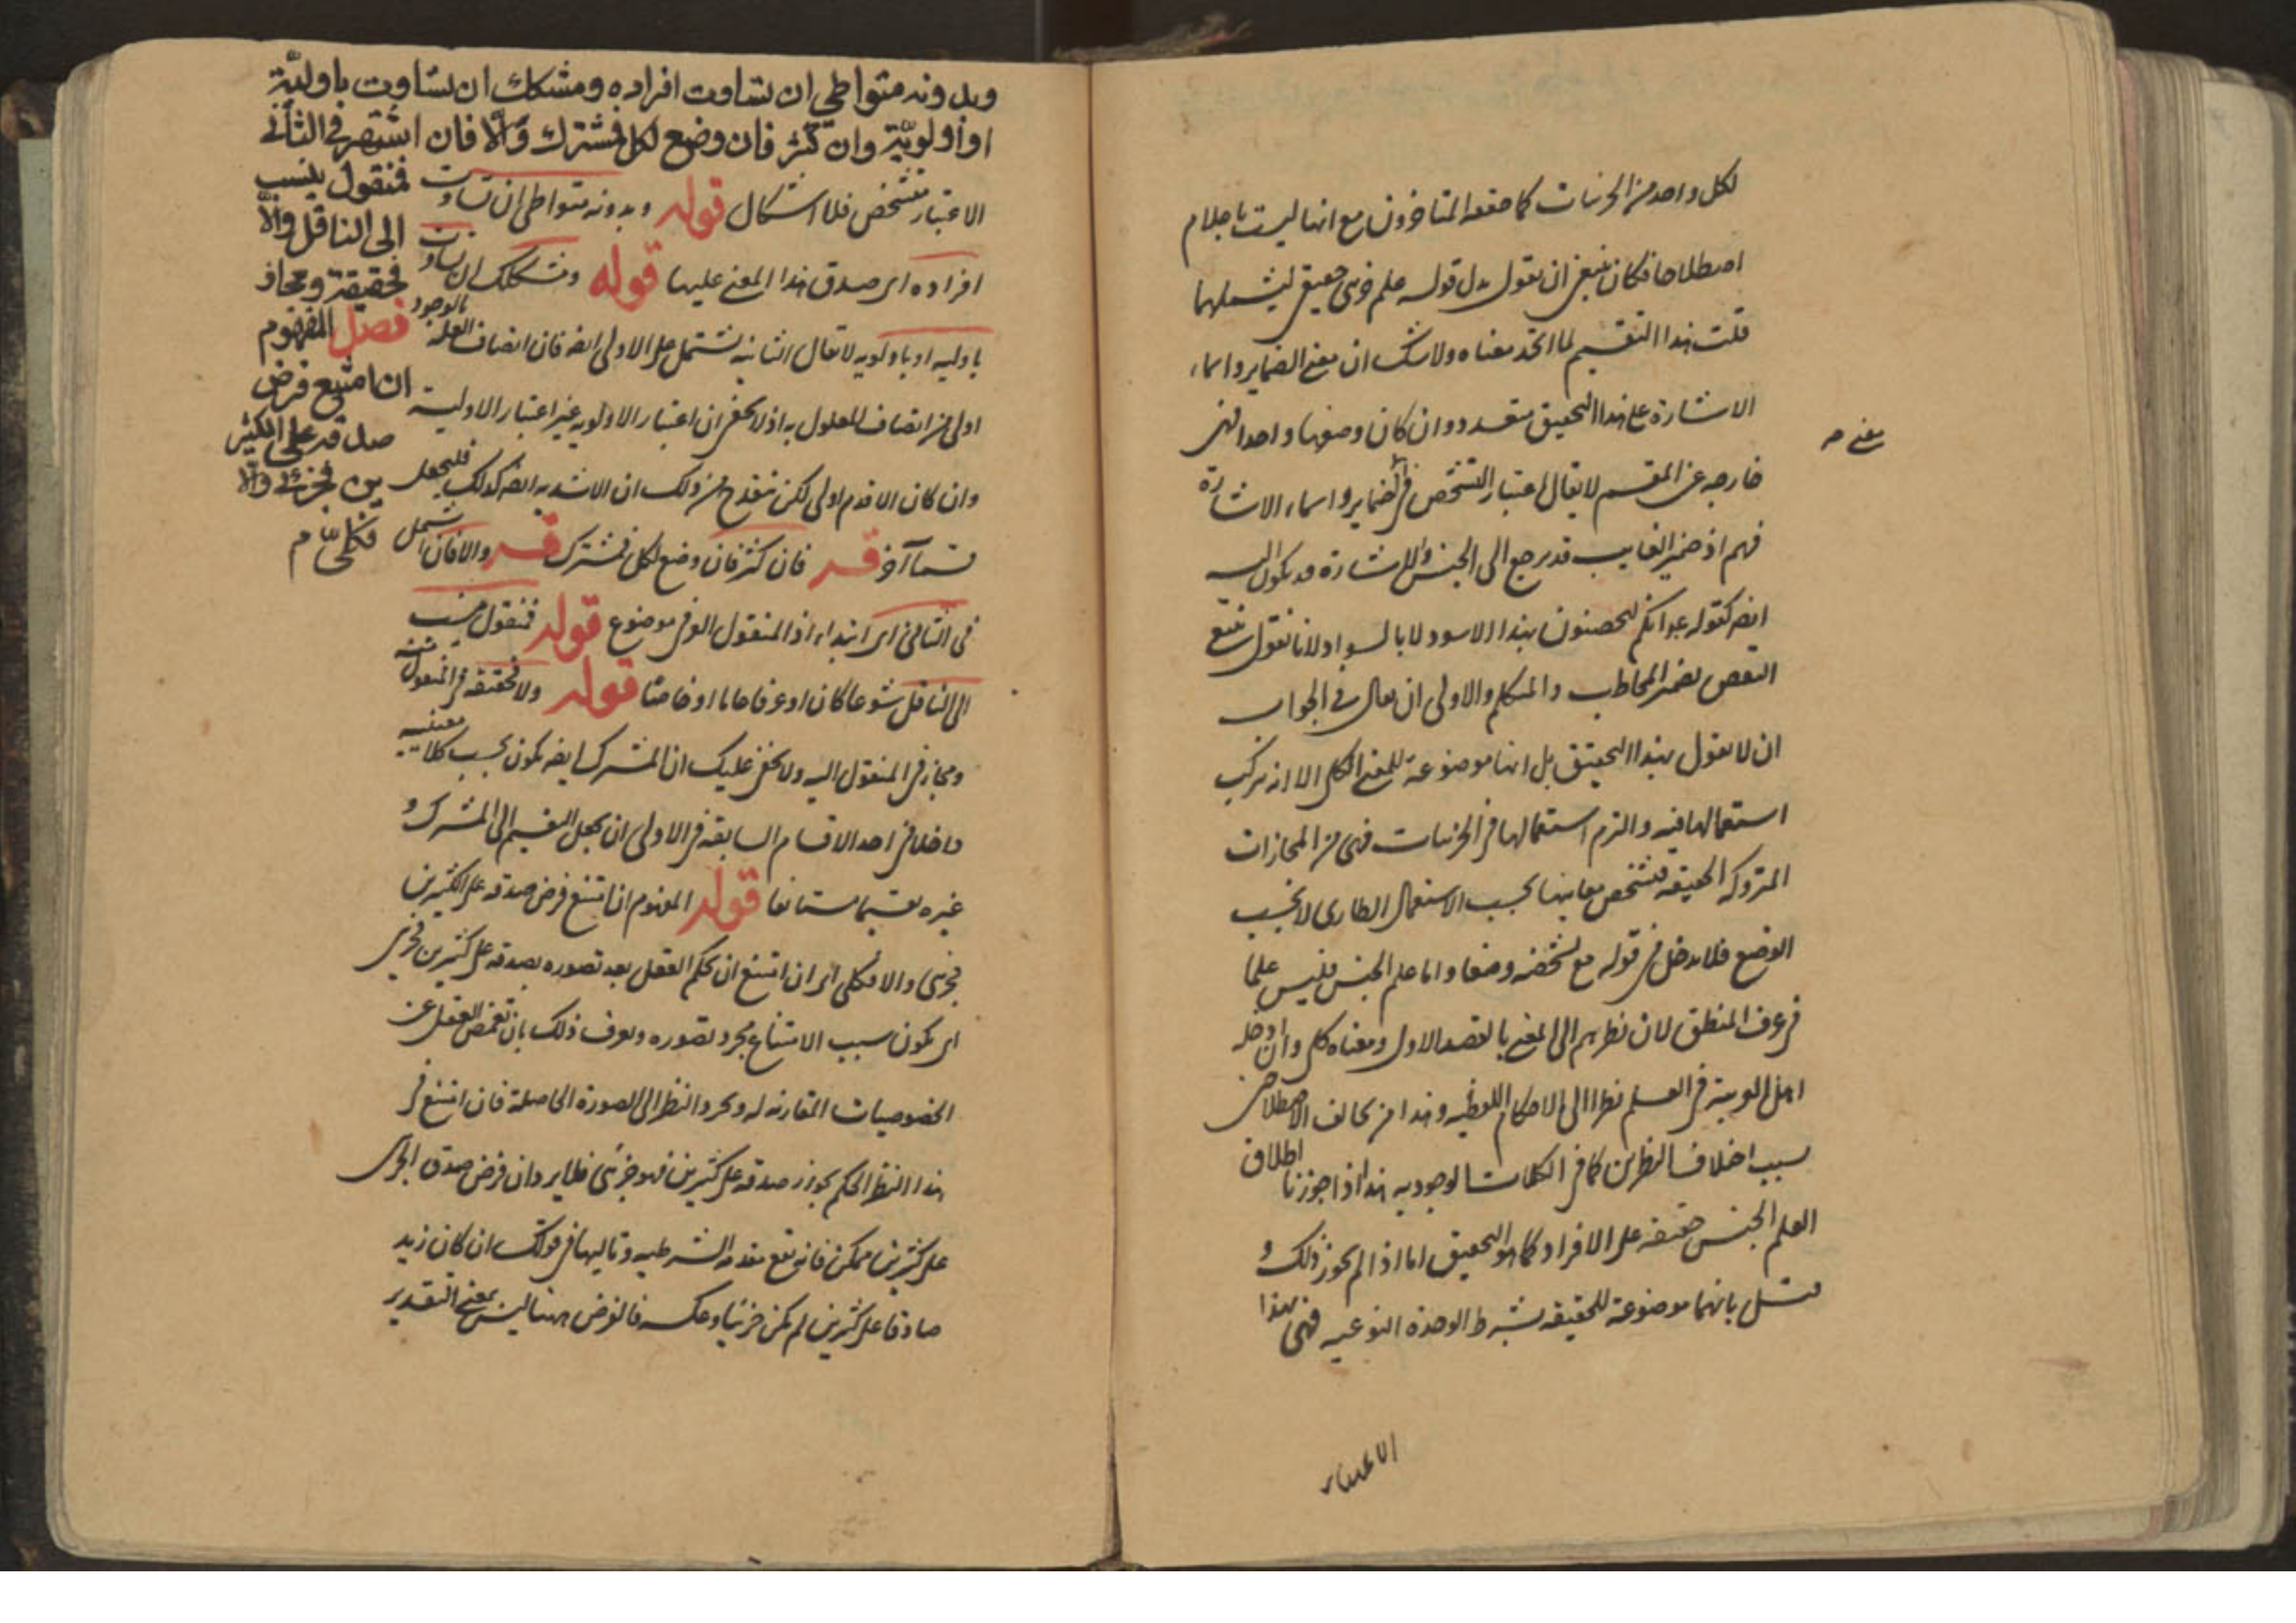 لكل واحد من الجزئيات كما حققه المتاخرون مع انها ليست باعلام
اصطلاحا فكان ينبغي ان يقول بدل قوله علم جزئي حقيقي ليشملهما
قلت هذا التقسيم لما اتحد معناه ولا شك ان معنى الضماير واسماء
الاشارة على هذا التحقيق متعدد وان كان وضعها واحدا فهي
معنى صح
خارجه عن المقسم لا يقال اعتبار التشخص في الضماير واسماء الاشارة
فهم اذ ضمير الغايب قد يرجع الى الجنس والاشارة قد يكون اليه
ايضا كقوله
النقض بضمير المخاطب والمتكلم والاولى ان يقال في الجواب
ان لا نقول بهذا التحقيق بل انها موضوعة للمعنى الكلي الا انه ترك
استعمالها فيه والتزم استعمالها في الجزئيات فهي من المجازات
المتروكه الحقيقه فتشخص معانيها بحسب الاستعمال الطاري لا بحسب
الوضع فلا يدخل في قوله مع تشخصه وضعا واما علم الجنس فليس علما
في عرف المنطق لان نظرهم الى المعنى بالقصد الاول ومعناه كلي وان ادخله
اهل العربية في العلم نظرا الى الاحكام اللفظيه وهذا من تخالف الاصطلاحين
بسبب اختلاف النظرين كما في الكلمات الوجوديه هذا اذا جوزنا اطلاق
العلم الجنس حقيقه على الافراد كما هو التحقيق اما اذا لم يجوز ذلك و
قيل بانهما موضوعة للحقيقه بشرط الوحدة النوعيه فهي بهذا
الاعتبار
وبدونه متواطي ان تساوت افراده ومشكك ان تفاوت باوليّة
او اولويّة وان كثر فان وضع لكل فمشترك والّا فان اشتهر في الثاني
فمنقول ينسب
الى الناقل والّا
فحقيقة ومجاز
فصل المفهوم
ان امتنع فرض
صدقه على الكثير
ين فجزئي والّا
فكليّ م
الاعتبار متشخص فلا اشكال قوله وبدونه متواطي ان تساوت
افراده اي صدق هذا المعنى عليها قوله ومشكك ان تفاوت
باوليه او باولويه لا يقال الثانيه تشتمل على الاولى ايضا فان اتصاف العله بالوجود
اولى من اتصاف المعلول به اذ لا يخفى ان اعتبار الاولويه غير اعتبار الاولية
وان كان الاقدم اولى لكن ينقدح من ذلك ان الاشديه ايضا كذلك فليجعل
قسما آخر قـه فان كثر فان وضع لكل فمشترك قـه والا فان اشتمل
في الثاني اي ابتداء اذ المنقول الو في موضوع قوله فمنقول ينسب
الى الناقل شرعا كان او عرفا عاما او خاصا قوله والا فحقيقه في المنقول عنه
ومجاز في المنقول اليه ولا يخفى عليك ان المشترك ايضا يكون بحسب كلا معنييه
داخلا في احد الاقسام السابقه فالاولى ان يجعل التقسيم الى المشترك و
غيره تقسيما مستانفا قوله المفهوم ان امتنع فرض صدقه على الكثيرين
فجزئي والا فكلي اي ان امتنع ان يحكم العقل بعد تصوره بصدقه على كثيرين فجزئي
اي يكون سبب الامتناع مجرد تصوره ويعرف ذلك بان يغمض العقل عن
الخصوصيات المقارنه له ويجرد النظر الى الصورة الحاصلة فان امتنع في
هذا النظر الحكم بجواز صدقه على كثيرين فهو جزئي فظاهر وان فرض صدق الجزئي
على كثيرين ممكن فانه يقع مقدم الشرطيه وتاليها في قولك ان كان زيد
صادقا على كثيرين لم يكن جزئيا وعكسه فالفرض ههنا ليس بمعنى التقدير